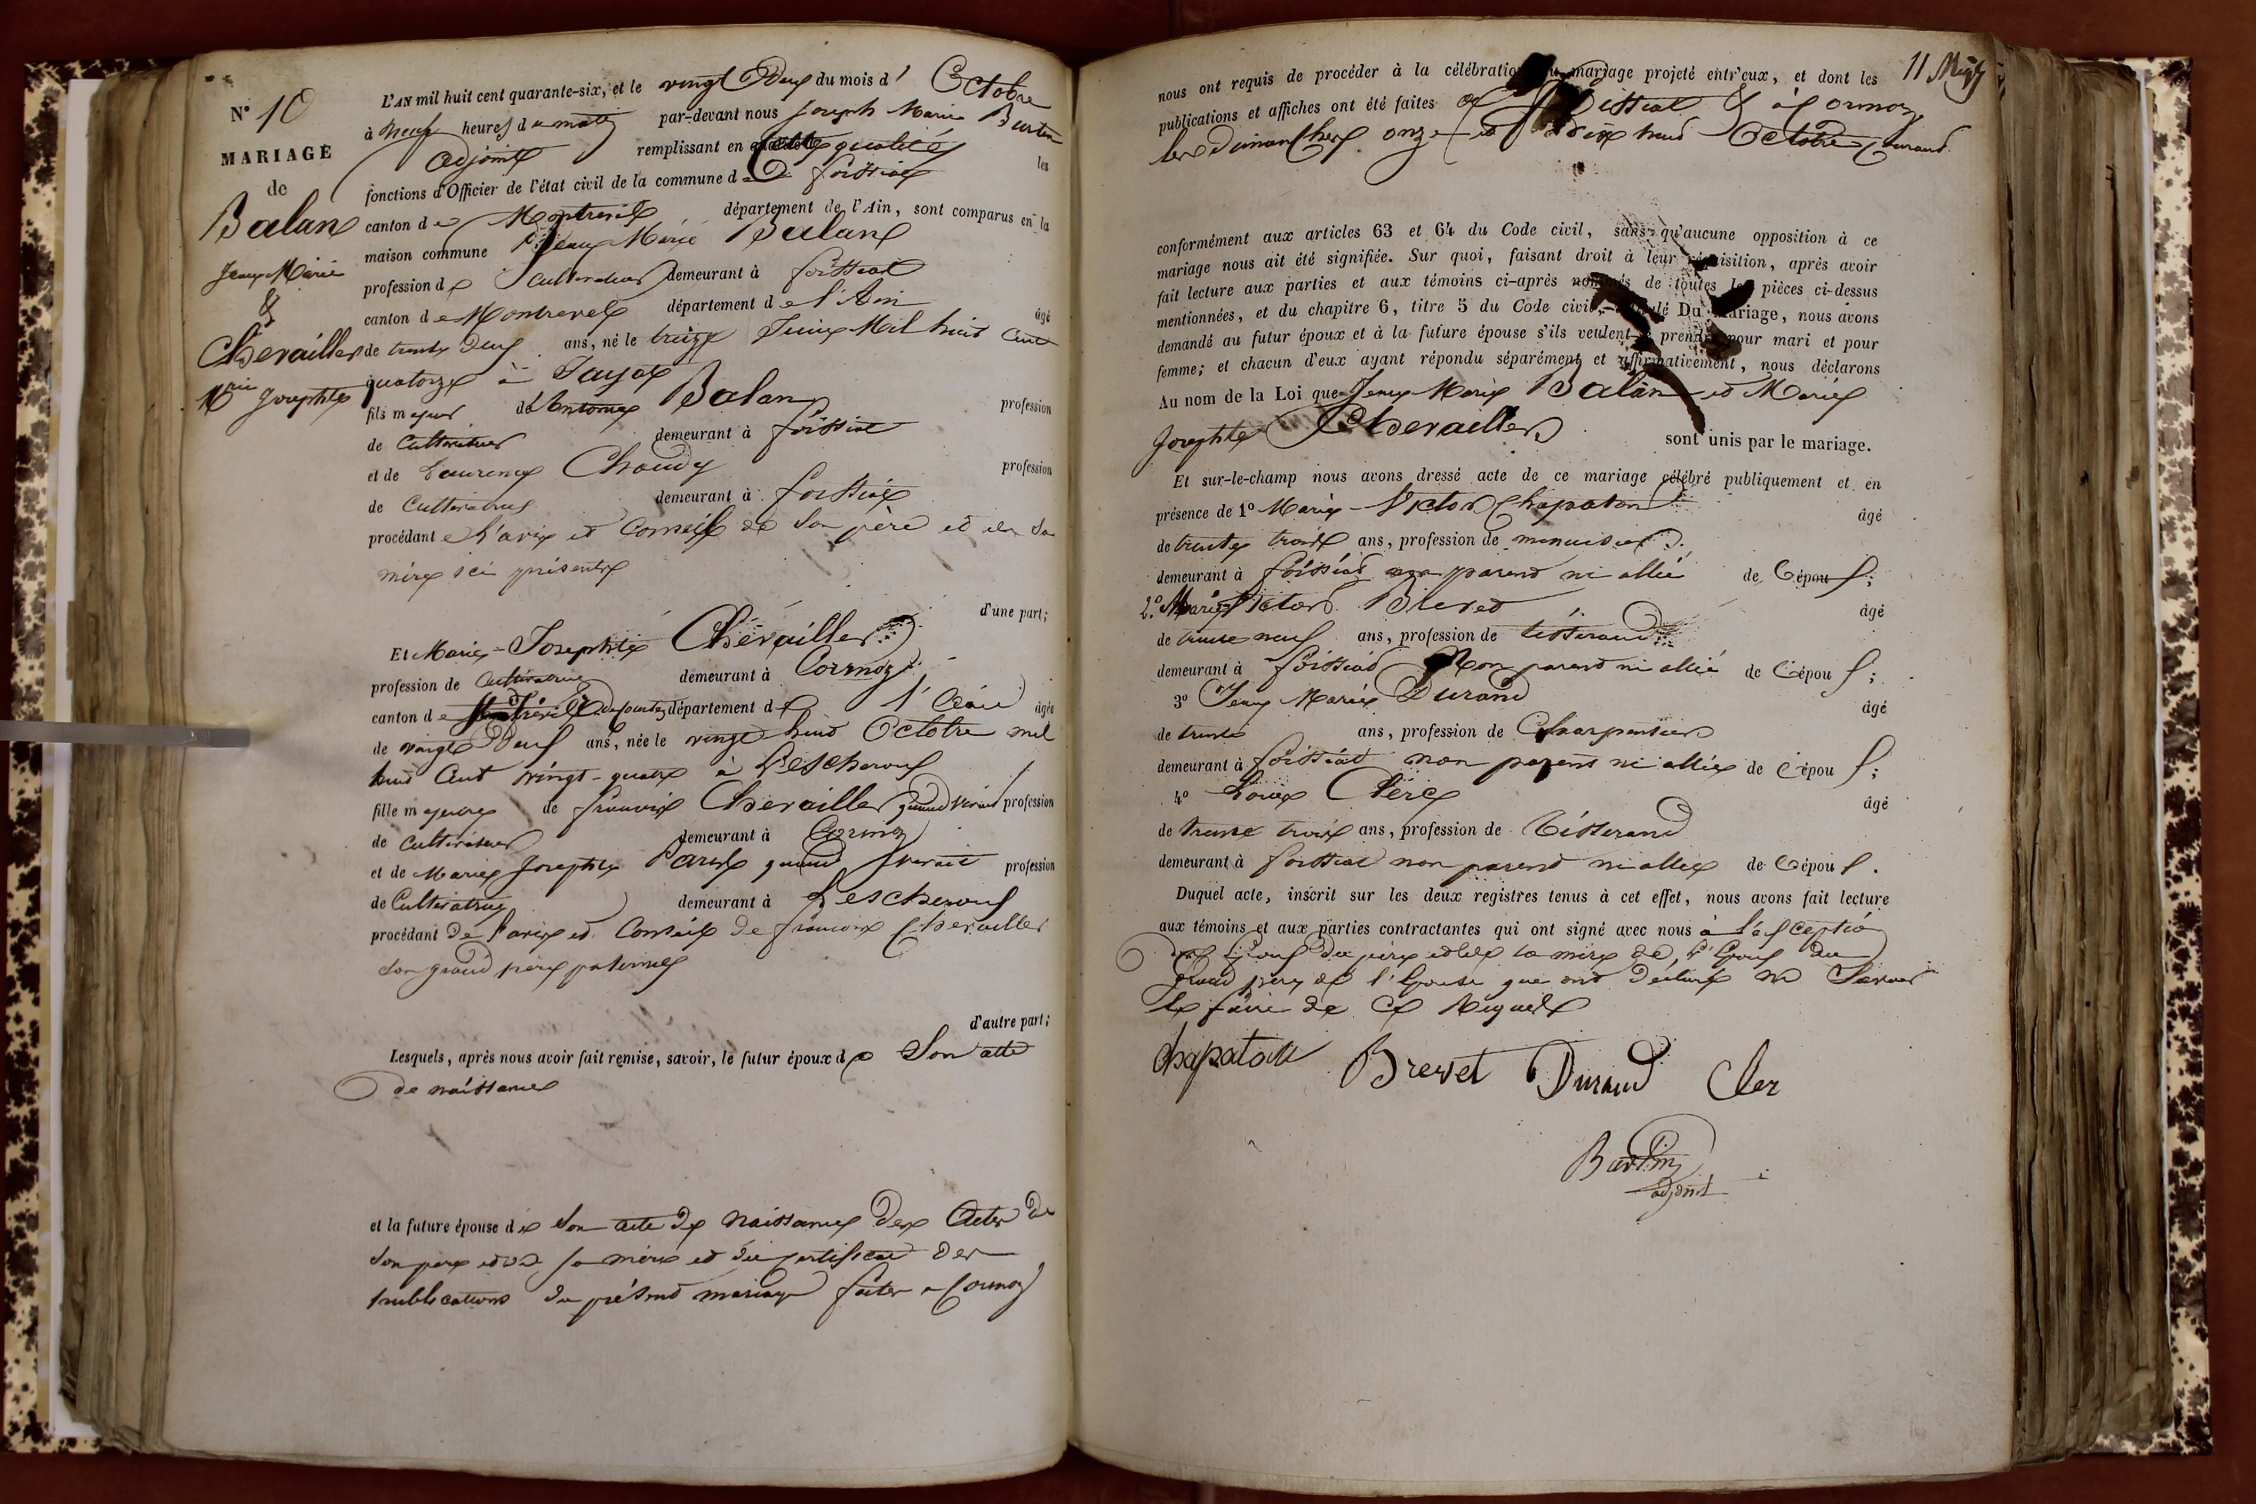 N° 10
MARIAGE
de
Balan
Jean Marie
&
Chevailler
Mie Josephte
L'AN mil huit cent quarante-six, et le vingt Deux du mois d' Octobre
à Neuf heures du matin par-devant nous Joseph Marie
adjoint remplissant en qualité les
fonctions d'Officier de l'état civil de la commune de foissiat
canton de Montrevel département de l'Ain, sont comparus en la
maison commune Jean Marie Balan
profession de Cultivateur demeurant à foissiat
canton de Montrevel département de l'Ain âgé
de trente Deux ans, né le treize Juin Mil huit Cent
quatorze à Jayat
fils majeur d'Antoine Balan profession
de Cultivateur demeurant à foissiat
et de Laurence Chaudy profession
de Cultivatrice demeurant à foissiat
procédant de l'avis et Conseil de son père et de sa
mère ici présents
d'une part;
Et Marie-Josephte Chevailler
profession de Cultivatrice demeurant à Cormoz
canton de département de l'Ain âgée
de vingt Deux ans, née le vingt huit Octobre mil
huit Cent vingt-quatre à Lescheroux
fille majeure de françois Chevailler quand vivait profession
de Cultivateur demeurant à Cormoz
et de Marie Josephte quand vivait profession
de Cultivatrice demeurant à Lescheroux
procédant de l'avis et Conseil de françois Chevailler
son grand père paternel
d'autre part;
Lesquels, après nous avoir fait remise, savoir, le futur époux de Son acte
de naissance
et la future épouse de son acte de Naissance Des Actes de
son père et de sa mère et du certificat des
publications du présent mariage faites a Cormoz
nous ont requis de procéder à la célébration du mariage projeté entr'eux, et dont les
publications et affiches ont été faites a foissiat & à Cormoz
les Dimanches onze et dix huit Octobre Courant
conformément aux articles 63 et 64 du Code civil, sans qu'aucune opposition à ce
mariage nous ait été signifiée. Sur quoi, faisant droit à leur réquisition, après avoir
fait lecture aux parties et aux témoins ci-après nommés de toutes les pièces ci-dessus
mentionnées, et du chapitre 6, titre 5 du Code civil, intitulé Du Mariage, nous avons
demandé au futur époux et à la future épouse s'ils veulent se prendre pour mari et pour
femme; et chacun d'eux ayant répondu séparément et affirmativement, nous déclarons
Au nom de la Loi que Jean Marie Balan et Marie
Josephte Chevailler sont unis par le mariage.
Et sur-le-champ nous avons dressé acte de ce mariage célébré publiquement et en
présence de 1° Marie-Victor Chapaton âgé
de trente trois ans, profession de menuisier
demeurant à foissiat non parent ni allié de l'époux;
2° Marie Victor Brevet âgé
de trente neuf ans, profession de tisserand
demeurant à foissiat Non parent ni allié de l'époux;
3° Jean Marie Durand âgé
de trente ans, profession de Charpentier
demeurant à foissiat non parent ni allié de l'époux;
4° Clerc âgé
de trente trois ans, profession de tisserand
demeurant à foissiat non parent ni allié de l'époux.
Duquel acte, inscrit sur les deux registres tenus à cet effet, nous avons fait lecture
aux témoins et aux parties contractantes qui ont signé avec nous à l'exception
des époux du père et de la mère de l'Epoux du
grand père de l'Epouse que ont déclaré ne Savoir
le faire de Ce Requis
Chapaton Brevet Durand Cler
adjoint